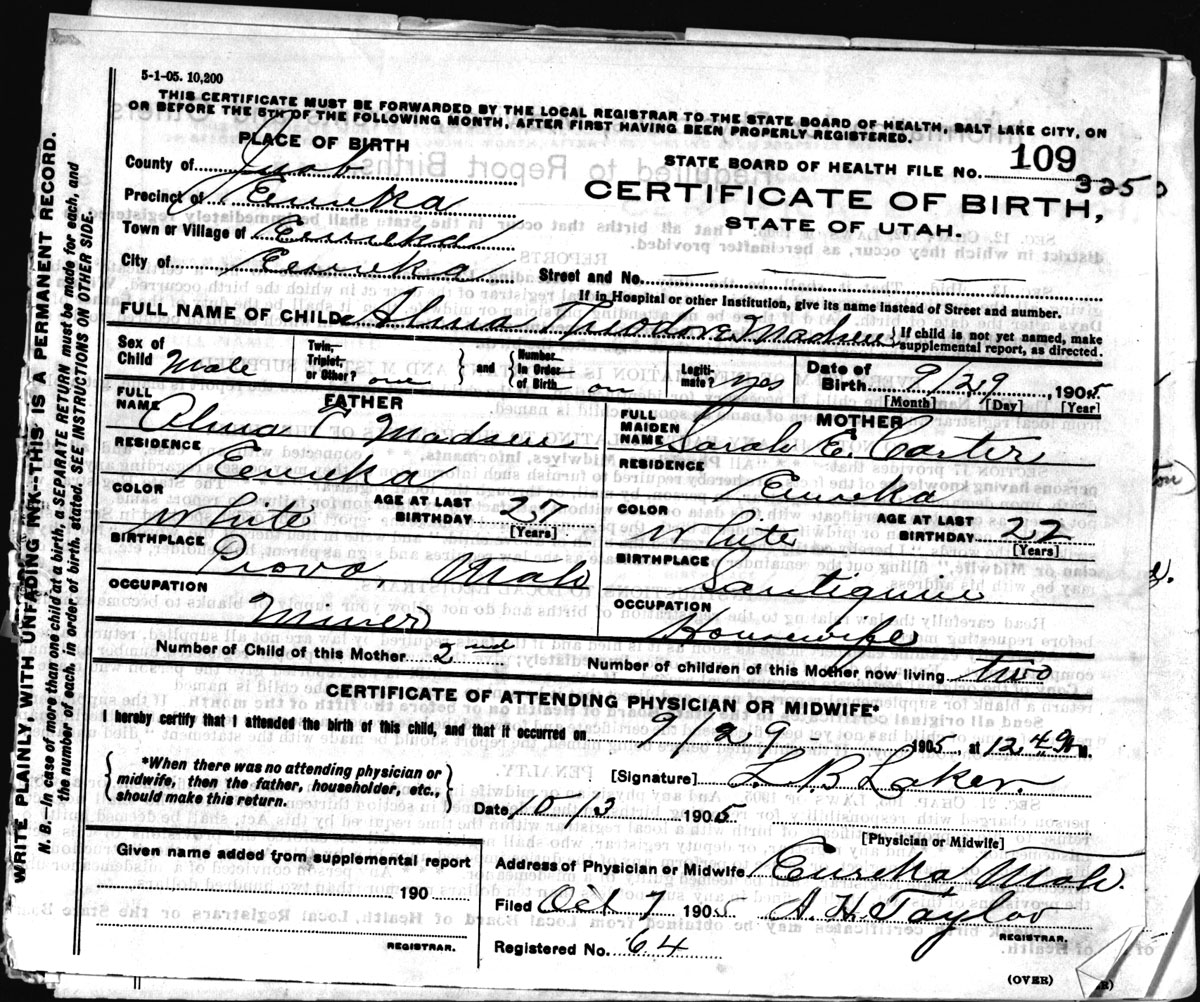 5-1-05. 10,200
THIS CERTIFICATE MUST BE FORWARDED BY THE LOCAL REGISTRAR TO THE STATE BOARD OF HEALTH, SALT LAKE CITY, ON
OR BEFORE THE 5TH OF THE FOLLOWING MONTH, AFTER FIRST HAVING BEEN PROPERLY REGISTERED.
PLACE OF BIRTH
STATE BOARD OF HEALTH FILE No. 109
3250
County of Juab
CERTIFICATE OF BIRTH,
Precinct of Eureka
STATE OF UTAH.
Town or Village of Eureka
City of Eureka Street and No. — —
If in Hospital or other Institution, give its name instead of Street and number.
FULL NAME OF CHILD Alma Theodore Madsen } If child is not yet named, make
supplemental report, as directed.
Sex of
Child Male
Twin,
Triplet,
or Other? one
} and {
Number
In Order
of Birth on
Legiti-
mate? yes
Date of
Birth 9/29, 1905
[Month] [Day] [Year]
FATHER
FULL
NAME Alma T Madsen
MOTHER
FULL
MAIDEN
NAME Sarah E. Carter
RESIDENCE Eureka
RESIDENCE Eureka
COLOR White
AGE AT LAST
BIRTHDAY 27
[Years]
COLOR White
AGE AT LAST
BIRTHDAY 22
[Years]
BIRTHPLACE Provo, Utah
BIRTHPLACE Santiquin
OCCUPATION Miner
OCCUPATION Housewife
Number of Child of this Mother 2nd
Number of children of this Mother now living two
CERTIFICATE OF ATTENDING PHYSICIAN OR MIDWIFE*
I hereby certify that I attended the birth of this child, and that it occurred on 9/29 1905 at 12.49 M.
{ *When there was no attending physician or
midwife, then the father, householder, etc.,
should make this return. }
[Signature]
Date 10/3 1905
[Physician or Midwife]
Given name added from supplemental report
190
REGISTRAR.
Address of Physician or Midwife Eureka Utah.
Filed Oct 7 1905 A. H. Taylor
REGISTRAR.
Registered No. 64
(OVER)
WRITE PLAINLY, WITH UNFADING INK--THIS IS A PERMANENT RECORD.
N. B.—In case of more than one child at a birth, a SEPARATE RETURN must be made for each, and
the number of each, in order of birth, stated. SEE INSTRUCTIONS ON OTHER SIDE.